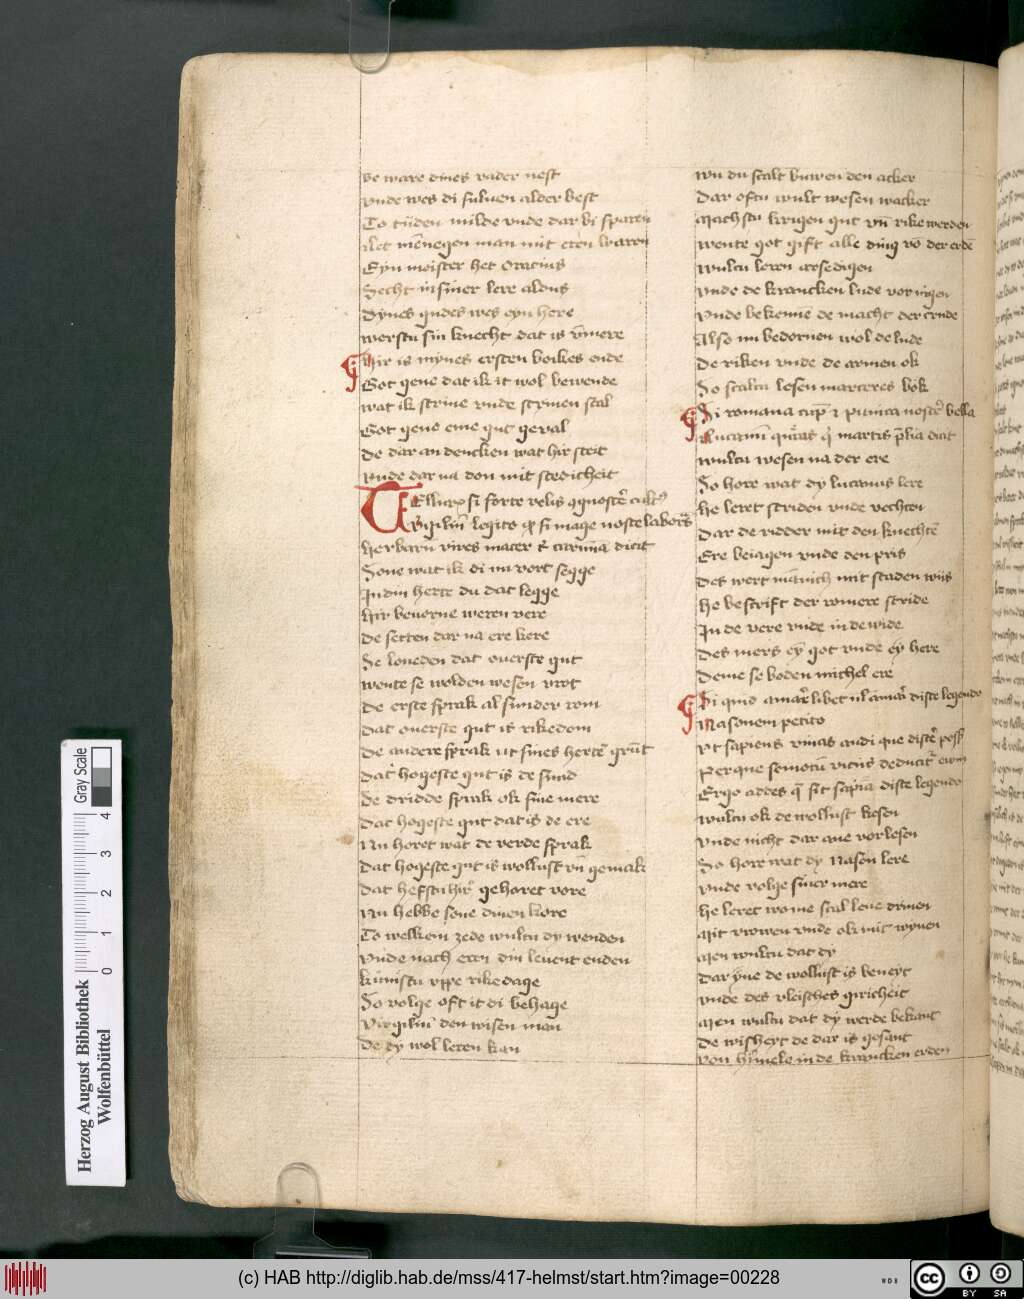 Be ware dines vader nest
vnde wes di suluen alder best
To tiiden milde vnde dar bi sparen
Let mēnegen man mit eren waren
Eyn meister het Oracius
Secht in siner lere aldus
Dynes gudes wes eyn here
werstu sin knecht dat is vnmere
Hir is mynes ersten bokes ende
Got geue dat ik it wol bewende
wat ik scriue vnde scriuen scal
Got geue eme gut geual
De dar an dencken wat hir steit
vnde dar na don mit stedicheit
Tellurꝫ si forte velis ꝯgnoscē cultꝰ
Virgiliū legito ꝙ si mage nosce labors
herbarū vires macer t̄ carmīa dicit
Sone wat ik di nu vort segge
In din herte du dat legge
hir beuorne weren vere
De setten dar na ere kere
Se loueden dat ouerste gut
wente se wolden wesen vrot
De erste sprak al sunder rom
dat ouerste gut is rikedom
De andere sprak ut sines herte grūt
dat hogeste gut is de sund
De dridde sprak ok sine mere
Dat hogeste gut dat is de ere
Nu horet wat de verde sprak
Dat hogeste gut is wollust vn̄ gemak
dat hefstu hir gehoret vore
Nu hebbe sone dinen kore
To welkem zede wultu dy wenden
vnde nach eren din leuent enden
kūmistu vppe rike dage
So volge oft it di behage
Virgiliū den wisen man
De dy wol leren kan
wu du scalt buwen den acker
Dar oftu wult wesen wacker
Machstu krigen gut vn̄ rike werden
wente got gift alle ding vō der erdē
wultu leren arsedigen
vnde de krancken lude vor nigen
vnde bekenne de macht der crude
Also nu bedoruen wol de lude
De riken vnde de armen ok
So scaltu lesen marceres bok
Si romana cup̄ ⁊ punica noscē bella
Lucanū quer̄as q̄ martis p̄lia dicit
wultu wesen na der ere
So hore wat dy lucanus lere
he leret striden vnde vechten
Dar de ridder mit den knechtē
Ere beiagen vnde den pris
Des wert mannich mit scaden wiis
he bescrift der romere stride
In de vere vnde in de wide
Des mers eȳ got vnde eȳ here
Deme se boden michel ere
Si quid amar̄ libet ul amar̄ disce legendo
Nasonem petito
vt sapiens viuas audi que discē poss̄
Perque semotū viciis deducit̄ euom
Ergo addes q̄ sit sap̄ia disce legendo
wultu ok de wollust kesen
vnde nicht dar ane vorlesen
So hore wat dy Nason lere
vnde volge siner mere
he leret wo me scal leue driuen
Mit vrowen vnde ok mit wyuen
Men wultu dat dy
Dar yne de wollust is beneyt
vnde des vleisches giricheit
Men wultu dat dy werde bekant
De wisheyt de dar is gesant
von himele in de krancken erden
Gray Scale
4
3
2
1
0
Herzog August Bibliothek
Wolfenbüttel
(c) HAB http://diglib.hab.de/mss/417-helmst/start.htm?image=00228
WDB
cc
BY SA